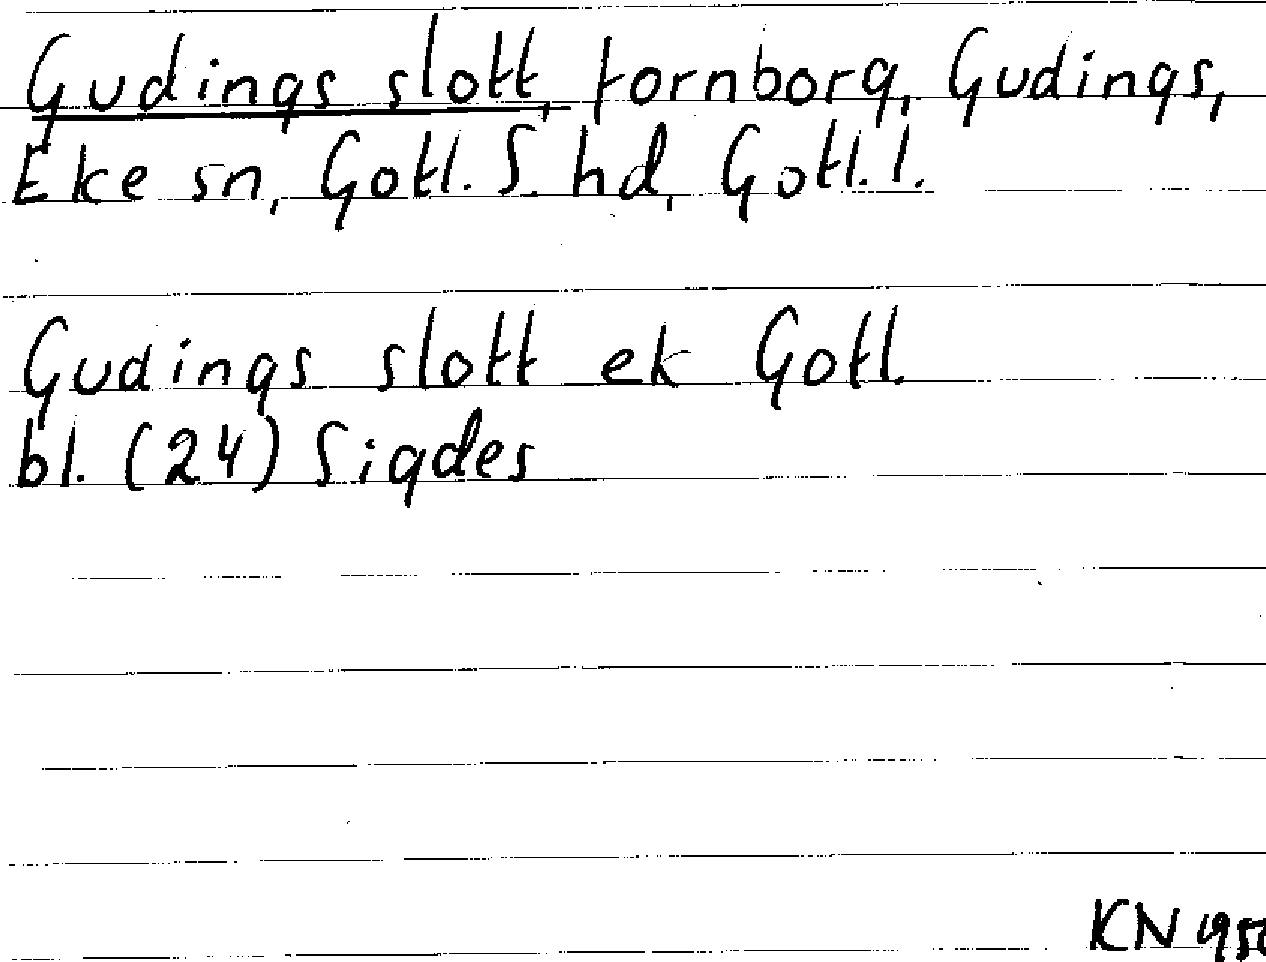 Gudings slott, fornborg, Gudings,
Eke sn, Gotl. S. hd, Gotl. l.
Gudings slott ek Gotl.
bl. (24) Sigdes
KN